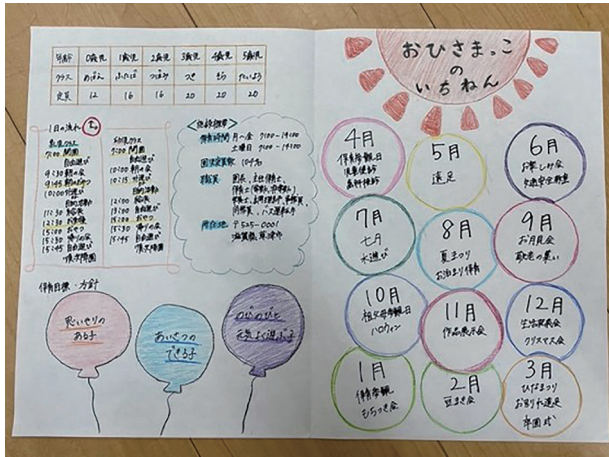 年齢 0歳児 1歳児 2歳児 3歳児 4歳児 5歳児
クラス ふたば つぼみ つき たいよう
定員 12 16 16 20 20 20
1日の流れ
乳児クラス
7:00 開園
自由遊び
9:30 朝の会
9:45 朝のおやつ
10:00
11:30 給食
12:30 お昼寝
15:00 おやつ
15:30 帰りの会
15:45 自由遊び
順次降園
幼児クラス
7:00 開園
自由遊び
朝の会
10:15
12:00 給食
13:00
15:00 おやつ
15:30 帰りの会
15:45 自由遊び
順次降園
<施設概要>
保育時間 月~金 7:00-19:00
土曜日 7:00-
104名
職員 園長、主任保育士、
バス運転手
所在地 〒525-0001
滋賀県草津市
保育目標・方針
思いやりの
ある子
あいさつの
できる子
のびのびと
元気よく遊ぶ子
おひさまっこ
の
いちねん
4月
保育参観日
歯科検診
5月
遠足
6月
お楽しみ会
交通安全教室
7月
七夕
水遊び
8月
夏まつり
お泊まり保育
9月
お月見会
敬老の集い
10月
祖父母参観日
ハロウィン
11月
作品展示会
12月
生活発表会
クリスマス会
1月
保育参観
もちつき会
2月
豆まき会
3月
ひなまつり
お別れ遠足
卒園式